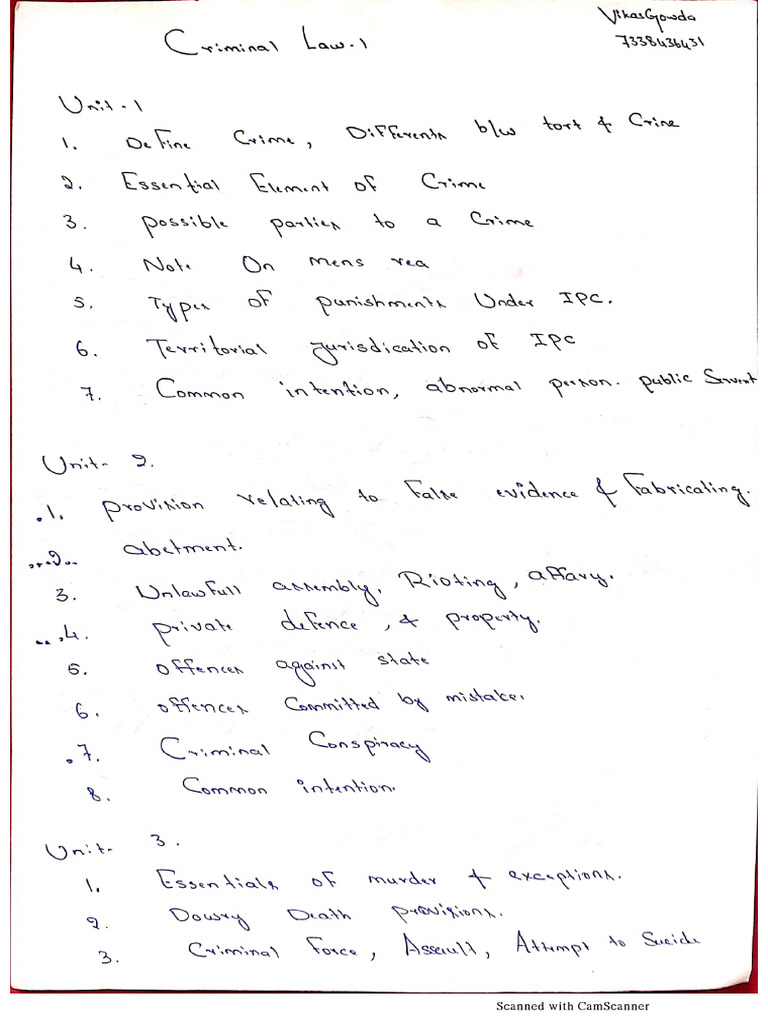 VikasGowda
7338436431
Criminal Law-1
Unit-1
1. Define Crime, Differents b/w tort & Crime
2. Essential Element of Crime
3. possible parties to a Crime
4. Note On mens rea
5. Types of punishments Under IPC.
6. Territorial jurisdication of IPC
7. Common intention, abnormal person. public Servent
Unit- 2.
1. provision relating to False evidence & Fabricating.
2. abetment.
3. Unlawfull assembly, Rioting, affary.
4. private defence, & property.
5. offences against state
6. offences Committed by mistake.
7. Criminal Conspiracy
8. Common intention.
Unit- 3.
1. Essentials of murder & exceptions.
2. Dowry Death provisions.
3. Criminal Force, Assault, Attempt to Sucide
Scanned with CamScanner